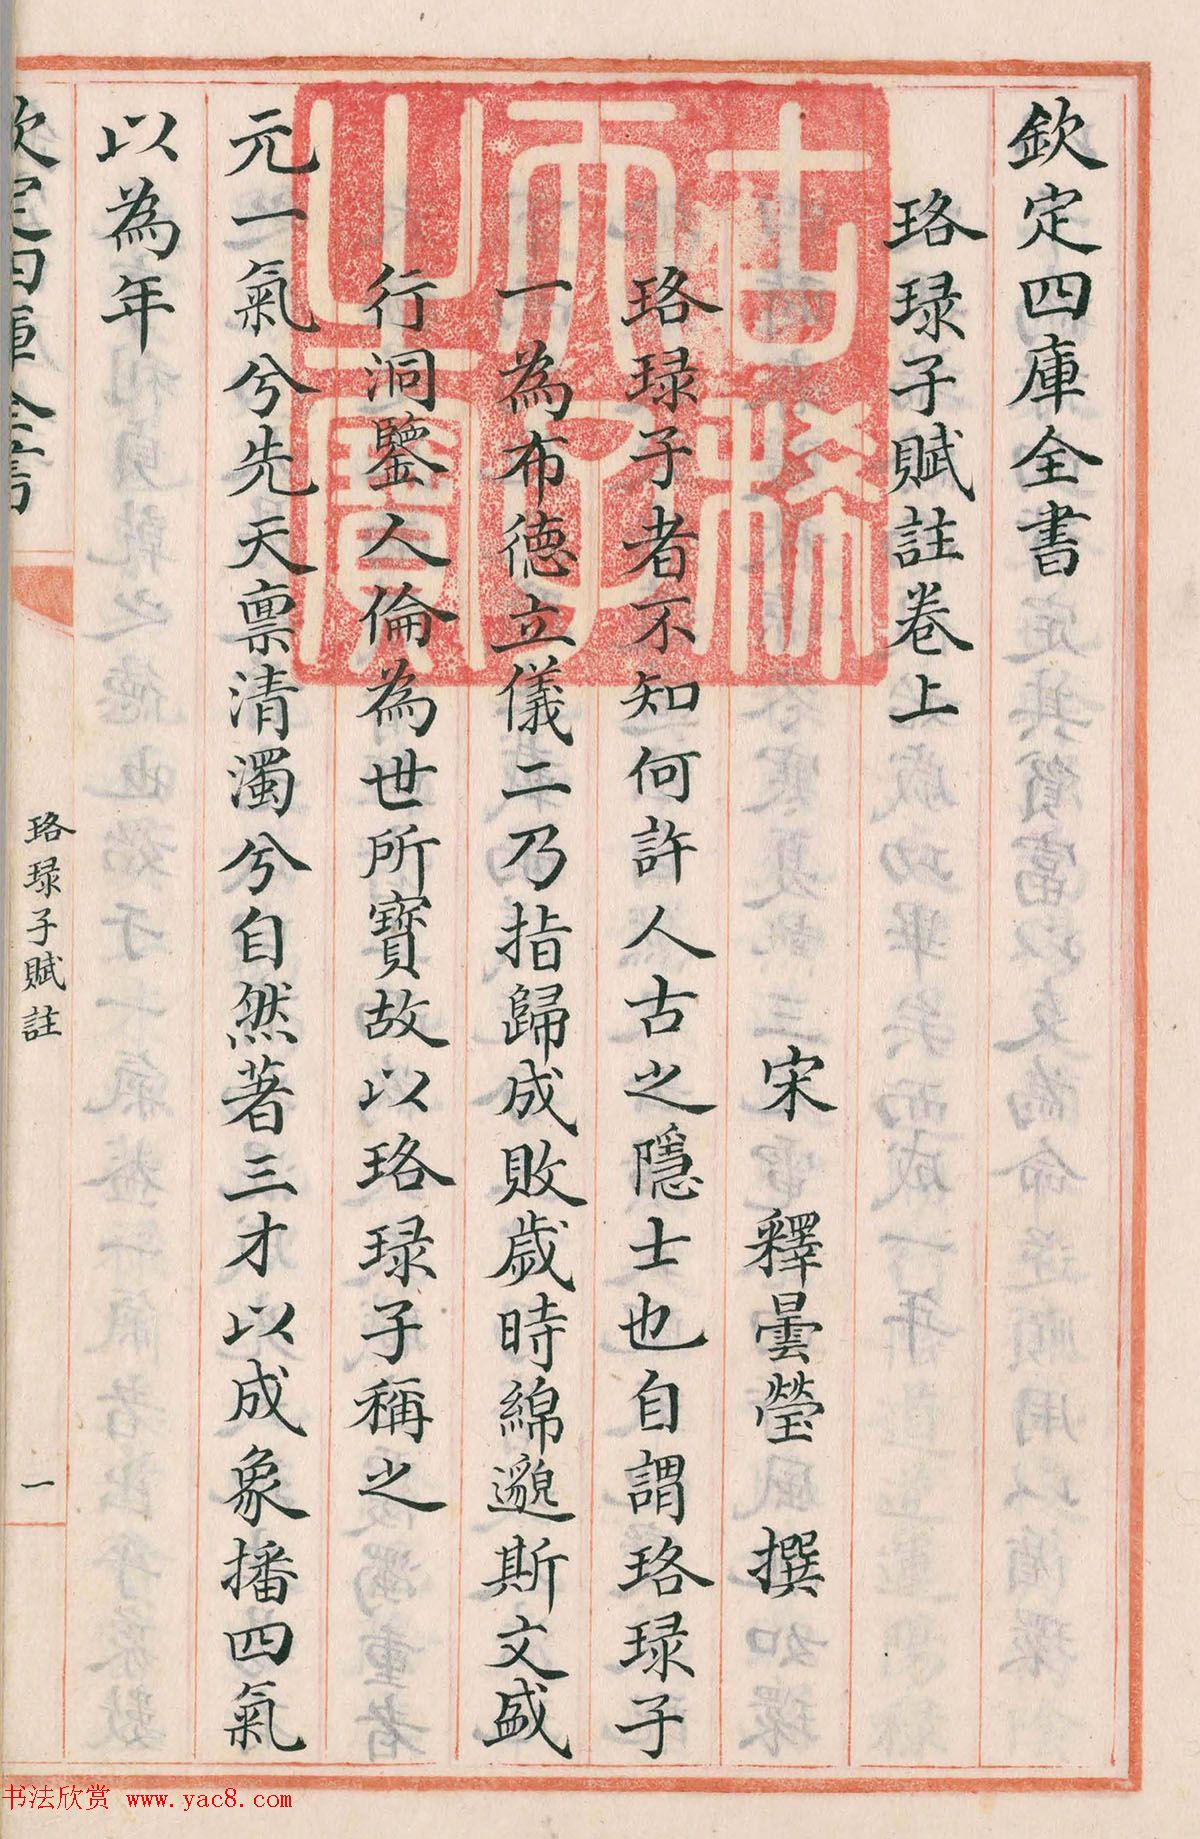 欽定四庫全書
珞琭子賦註卷上
宋 釋曇瑩 撰
珞琭子者不知何許人古之隱士也自謂珞琭子
一為布德立儀二乃指歸成敗歳時綿邈斯文盛
行洞鑒人倫為世所寳故以珞琭子稱之
元一氣兮先天禀清濁兮自然著三才以成象播四氣
以為年
欽定四庫全書
珞琭子賦註
一
古稀天子之寶
书法欣赏 www.yac8.com